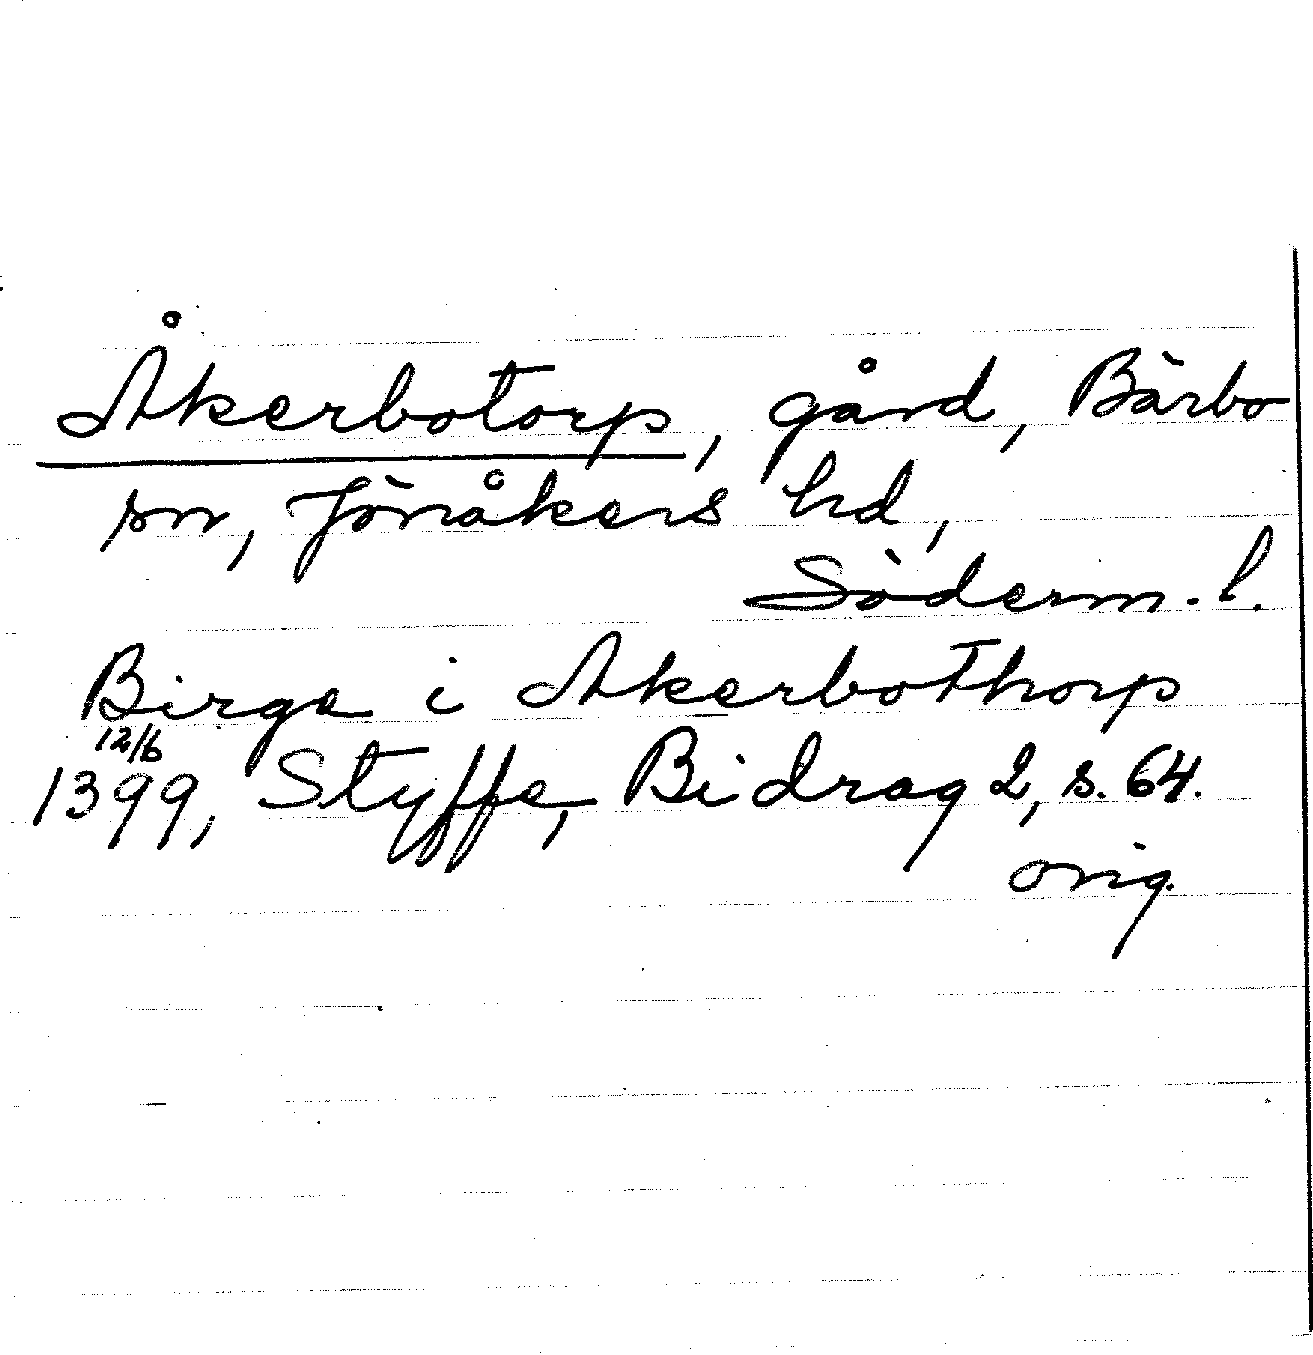 Åkerbotorp, gård, Bärbo
sn, Jönåkers hd,
Söderm. l.
Birge i Akerbothorp
12/6
1399, Styffe, Bidrag 2, s. 64.
orig.